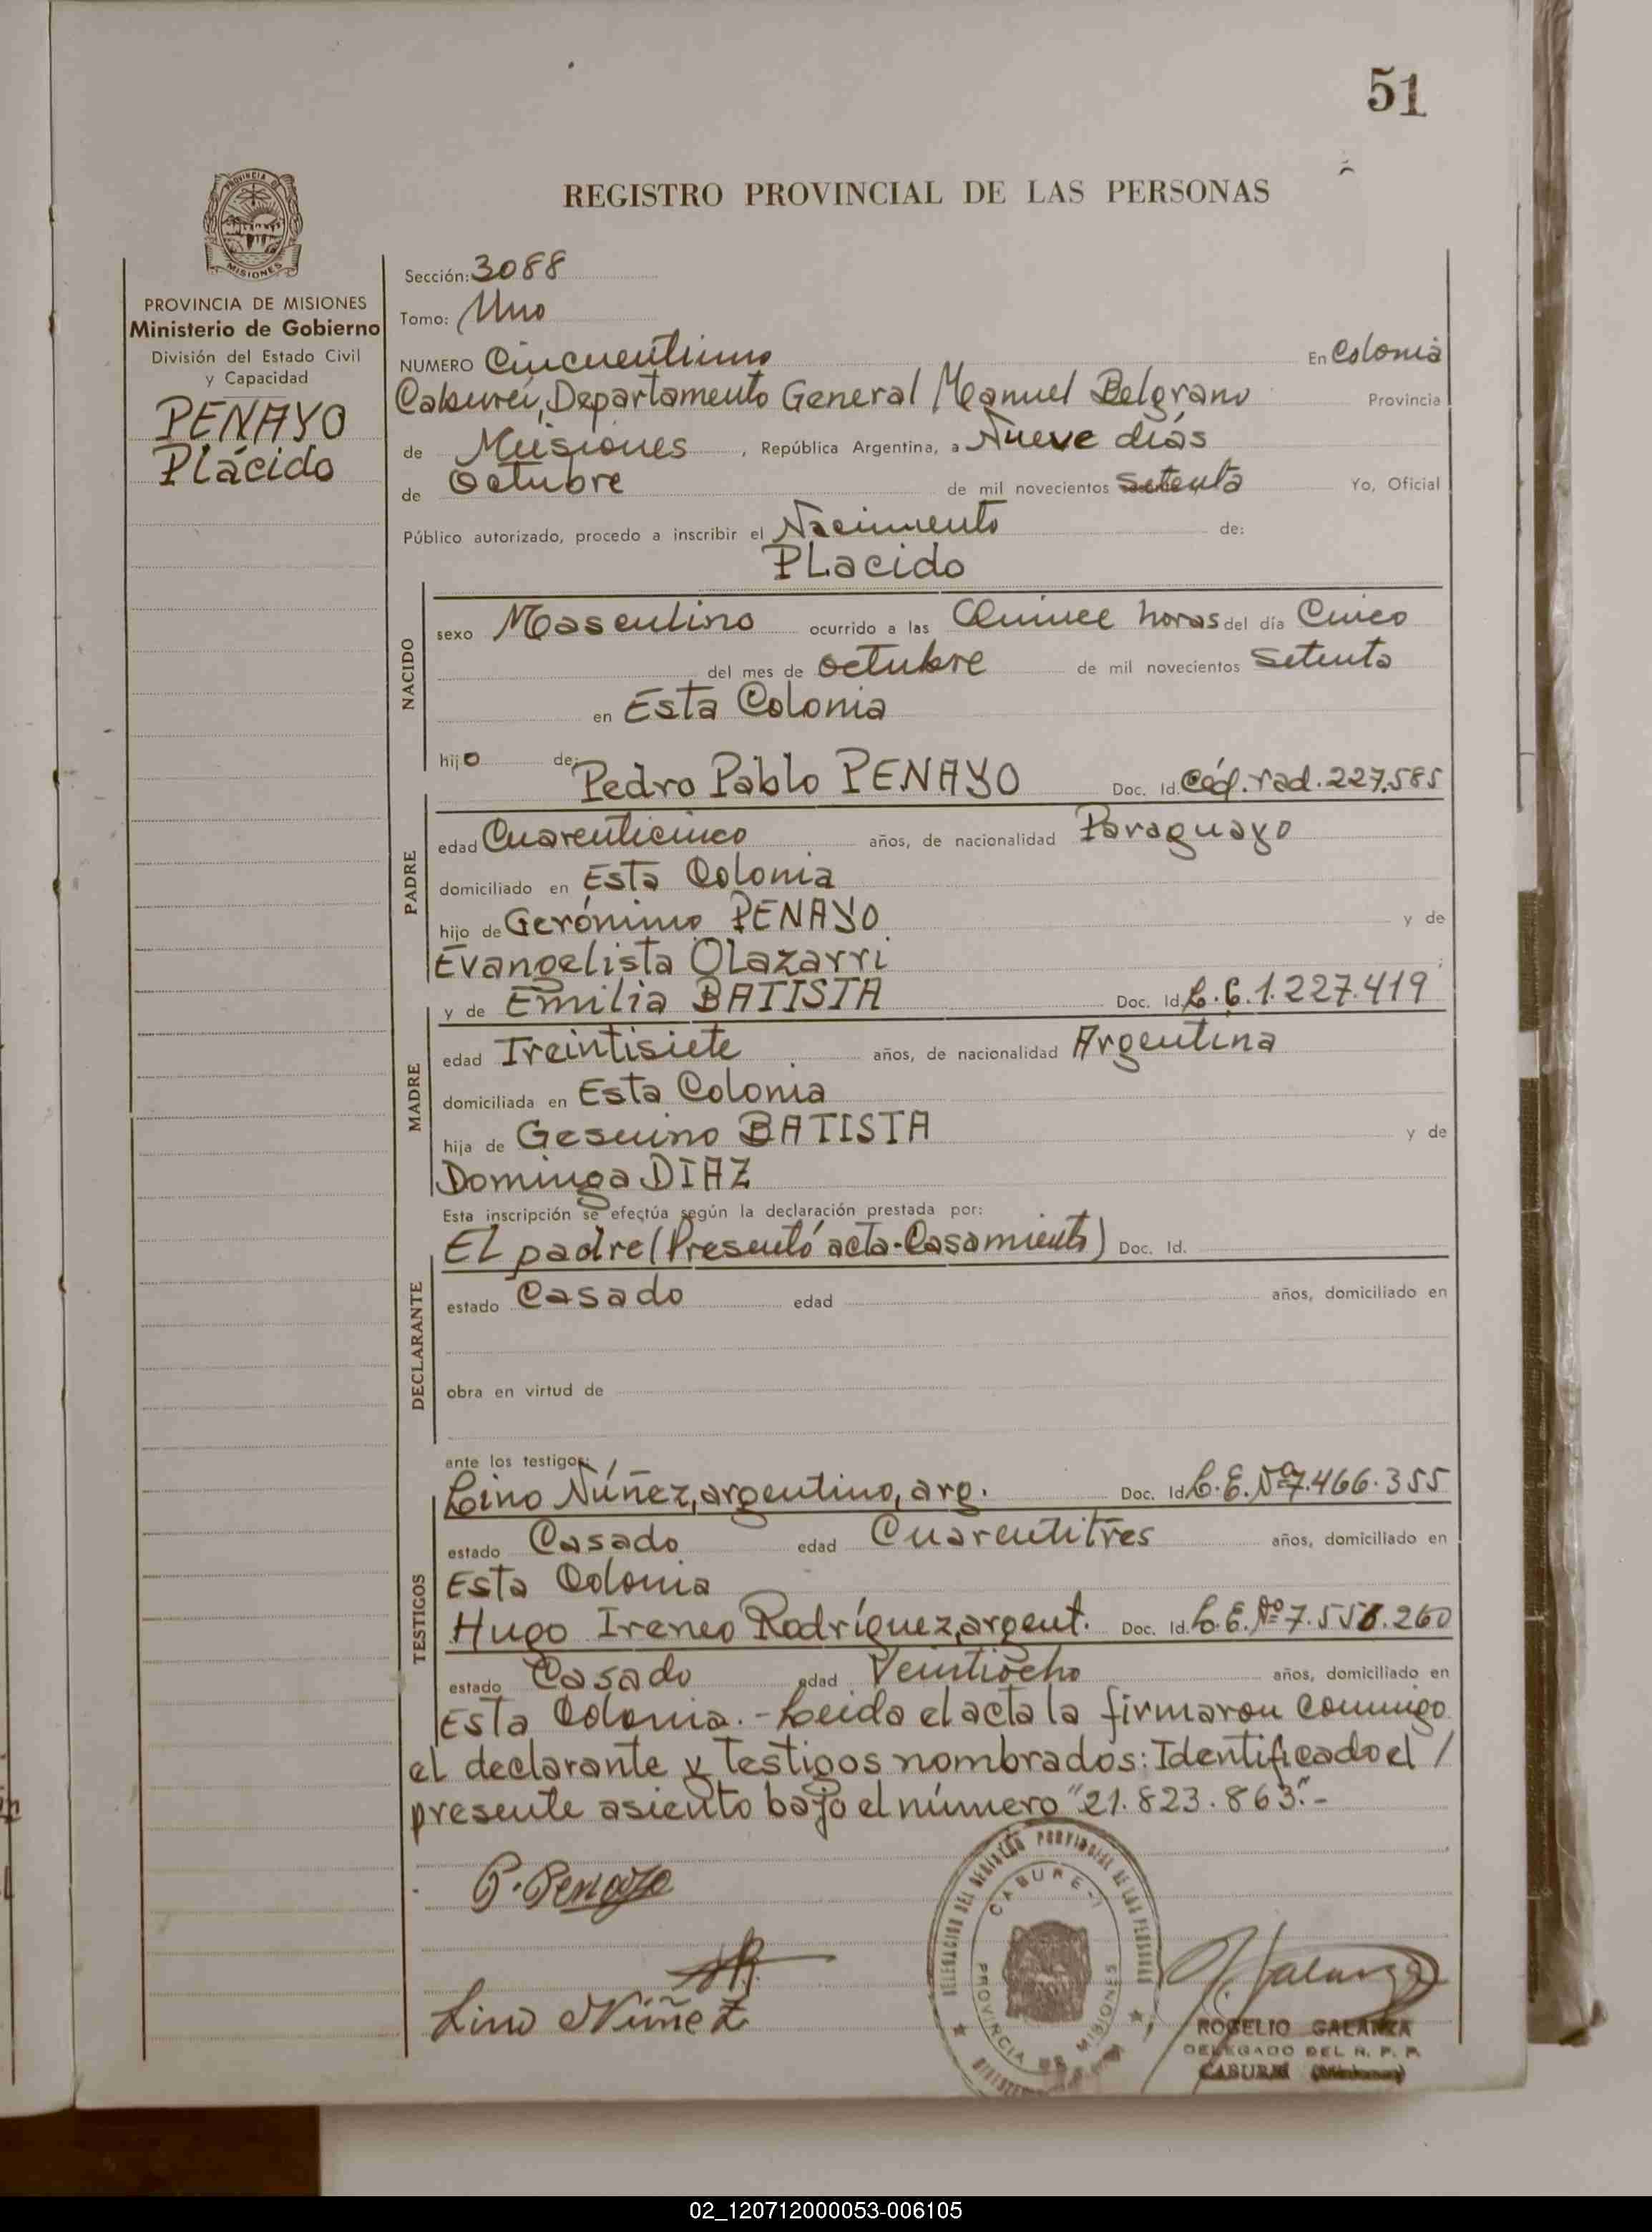 51
REGISTRO PROVINCIAL DE LAS PERSONAS
PROVINCIA DE
MISIONES
PROVINCIA DE MISIONES
Ministerio de Gobierno
División del Estado Civil
y Capacidad
PENAYO
Plácido
Sección: 3088
Tomo: Uno
NUMERO Cincuentiuno En Colonia
Caburei, Departamento General Manuel Belgrano Provincia
de Misiones, República Argentina, a Nueve días
de Octubre de mil novecientos setenta Yo, Oficial
Público autorizado, procedo a inscribir el Nacimiento de:
PLacido
NACIDO
sexo Masculino ocurrido a las Quince horas del día Cinco
del mes de octubre de mil novecientos Setenta
en Esta Colonia
hijo de:
Pedro Pablo PENAYO Doc. Id. Céd. rad. 227.585
PADRE
edad Cuarenticinco años, de nacionalidad Paraguayo
domiciliado en Esta Colonia
hijo de Gerónimo PENAYO y de
Evangelista OLazarri
y de Emilia BATISTA Doc. Id. L.C. 1.227.419
MADRE
edad Treintisiete años, de nacionalidad Argentina
domiciliada en Esta Colonia
hija de Gesuino BATISTA y de
Dominga DIAZ
Esta inscripción se efectúa según la declaración prestada por:
EL padre (Presentó acta-Casamiento) Doc. Id.
DECLARANTE
estado Casado edad años, domiciliado en
obra en virtud de
ante los testigos:
Lino Núñez, argentino, arg. Doc. Id. L.E. Nº 7.466.355
TESTIGOS
estado Casado edad Cuarentitres años, domiciliado en
Esta Colonia
Hugo Ireneo Rodríguez, argent. Doc. Id. L.E. Nº 7.558.260
estado Casado edad Veintiocho años, domiciliado en
Esta Colonia.- Leida el acta la firmaron conmigo
el declarante y testigos nombrados: Identificado el /
presente asiento bajo el número "21.823.863".-
P. Penayo
Lino Núñez
DELEGACION DEL REGISTRO PROVINCIAL DE LAS PERSONAS
CABURE-I
PROVINCIA DE MISIONES
R. Galarza
ROGELIO GALARZA
DELEGADO DEL R. P. P.
CABUREI
02_120712000053-006105